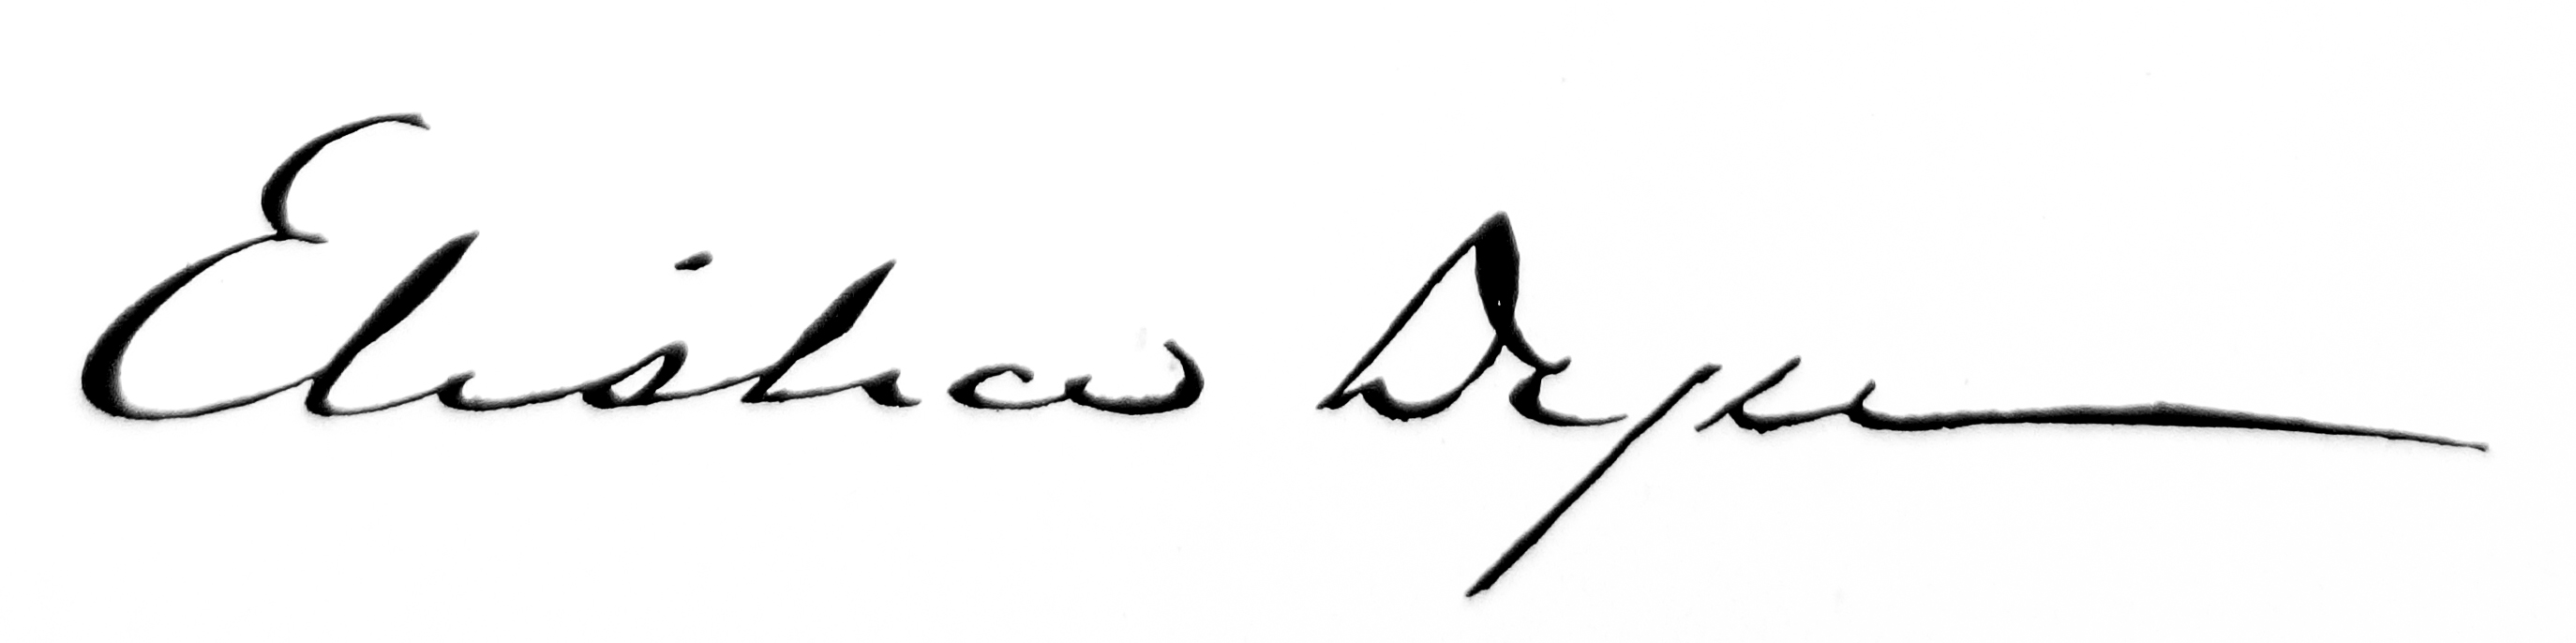 Elisha Dyer